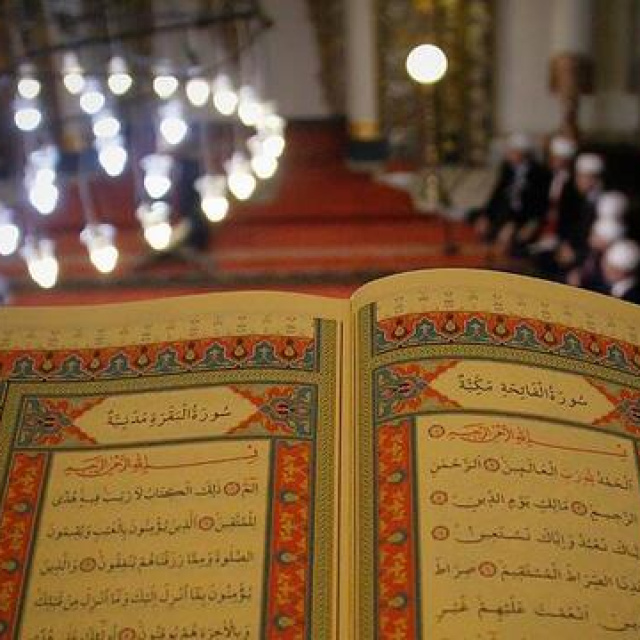 سُورَةُ الْفَاتِحَةِ مَكِّيَّةٌ
بِسْمِ اللّٰهِ الرَّحْمٰنِ الرَّحِيمِ
اَلْحَمْدُ لِلّٰهِ رَبِّ الْعَالَمِينَ اَلرَّحْمٰنِ
الرَّحِيمِ مَالِكِ يَوْمِ الدِّينِ
اِيَّاكَ نَعْبُدُ وَاِيَّاكَ نَسْتَعِينُ
اِهْدِنَا الصِّرَاطَ الْمُسْتَقِيمَ صِرَاطَ
الَّذِينَ اَنْعَمْتَ عَلَيْهِمْ غَيْرِ
سُورَةُ الْبَقَرَةِ مَدَنِيَّةٌ
بِسْمِ اللّٰهِ الرَّحْمٰنِ الرَّحِيمِ
الٓمٓ ذٰلِكَ الْكِتَابُ لَا رَيْبَ فِيهِ هُدًى
لِلْمُتَّقِينَ اَلَّذِينَ يُؤْمِنُونَ بِالْغَيْبِ وَيُقِيمُونَ
الصَّلٰوةَ وَمِمَّا رَزَقْنَاهُمْ يُنْفِقُونَ وَالَّذِينَ
يُؤْمِنُونَ بِمَا اُنْزِلَ اِلَيْكَ وَمَا اُنْزِلَ مِنْ قَبْلِكَ
وَبِالْاٰخِرَةِ هُمْ يُوقِنُونَ اُولٰئِكَ عَلٰى